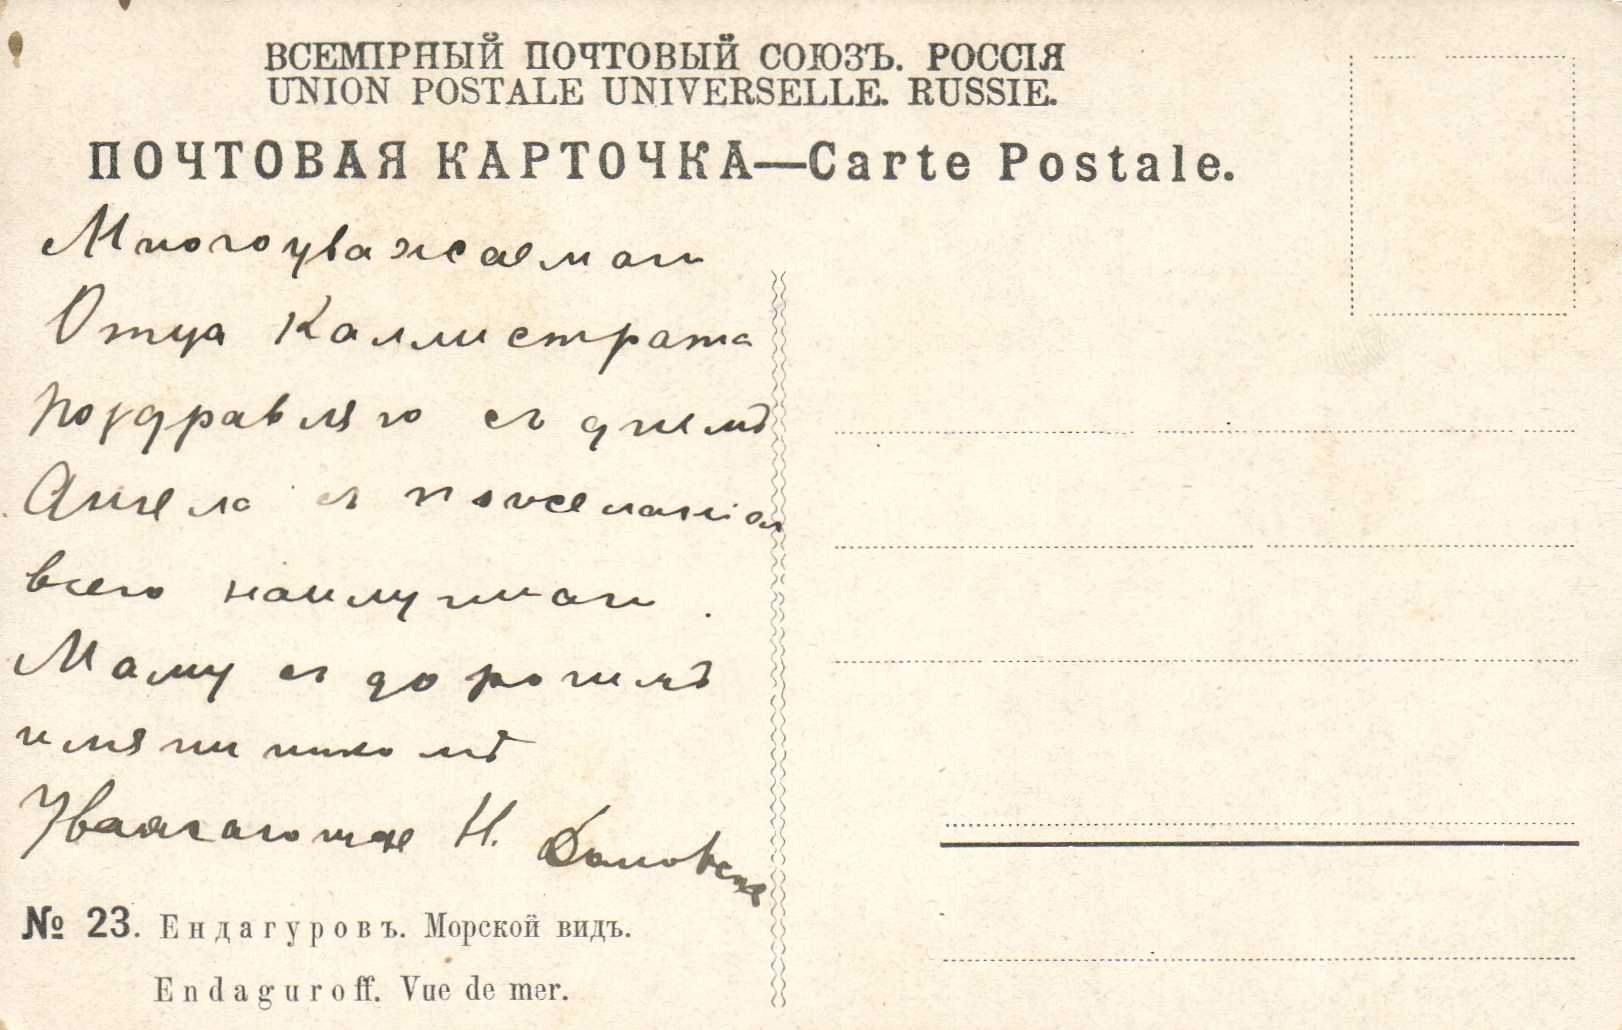 ВСЕМІРНЫЙ ПОЧТОВЫЙ СОЮЗЪ. РОССІЯ
UNION POSTALE UNIVERSELLE. RUSSIE.
ПОЧТОВАЯ КАРТОЧКА—Carte Postale.
Многоуважаемаго
Отца Каллистрата
поздравляю съ днемъ
Ангела съ пожеланіем
всего наилучшаго.
Маму съ дорогимъ
имянинникомъ
Уважающая Н.
№ 23. Ендагуровъ. Морской видъ.
Endaguroff. Vue de mer.